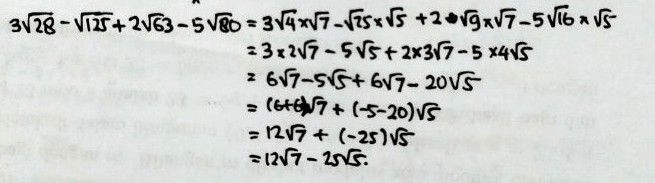 3√28 - √125 + 2√63 - 5√80 = 3√4 × √7 - √25 × √5 + 2 √9 × √7 - 5√16 × √5
= 3 × 2√7 - 5√5 + 2 × 3√7 - 5 × 4√5
= 6√7 - 5√5 + 6√7 - 20√5
= (6+6)√7 + (-5-20)√5
= 12√7 + (-25)√5
= 12√7 - 25√5.